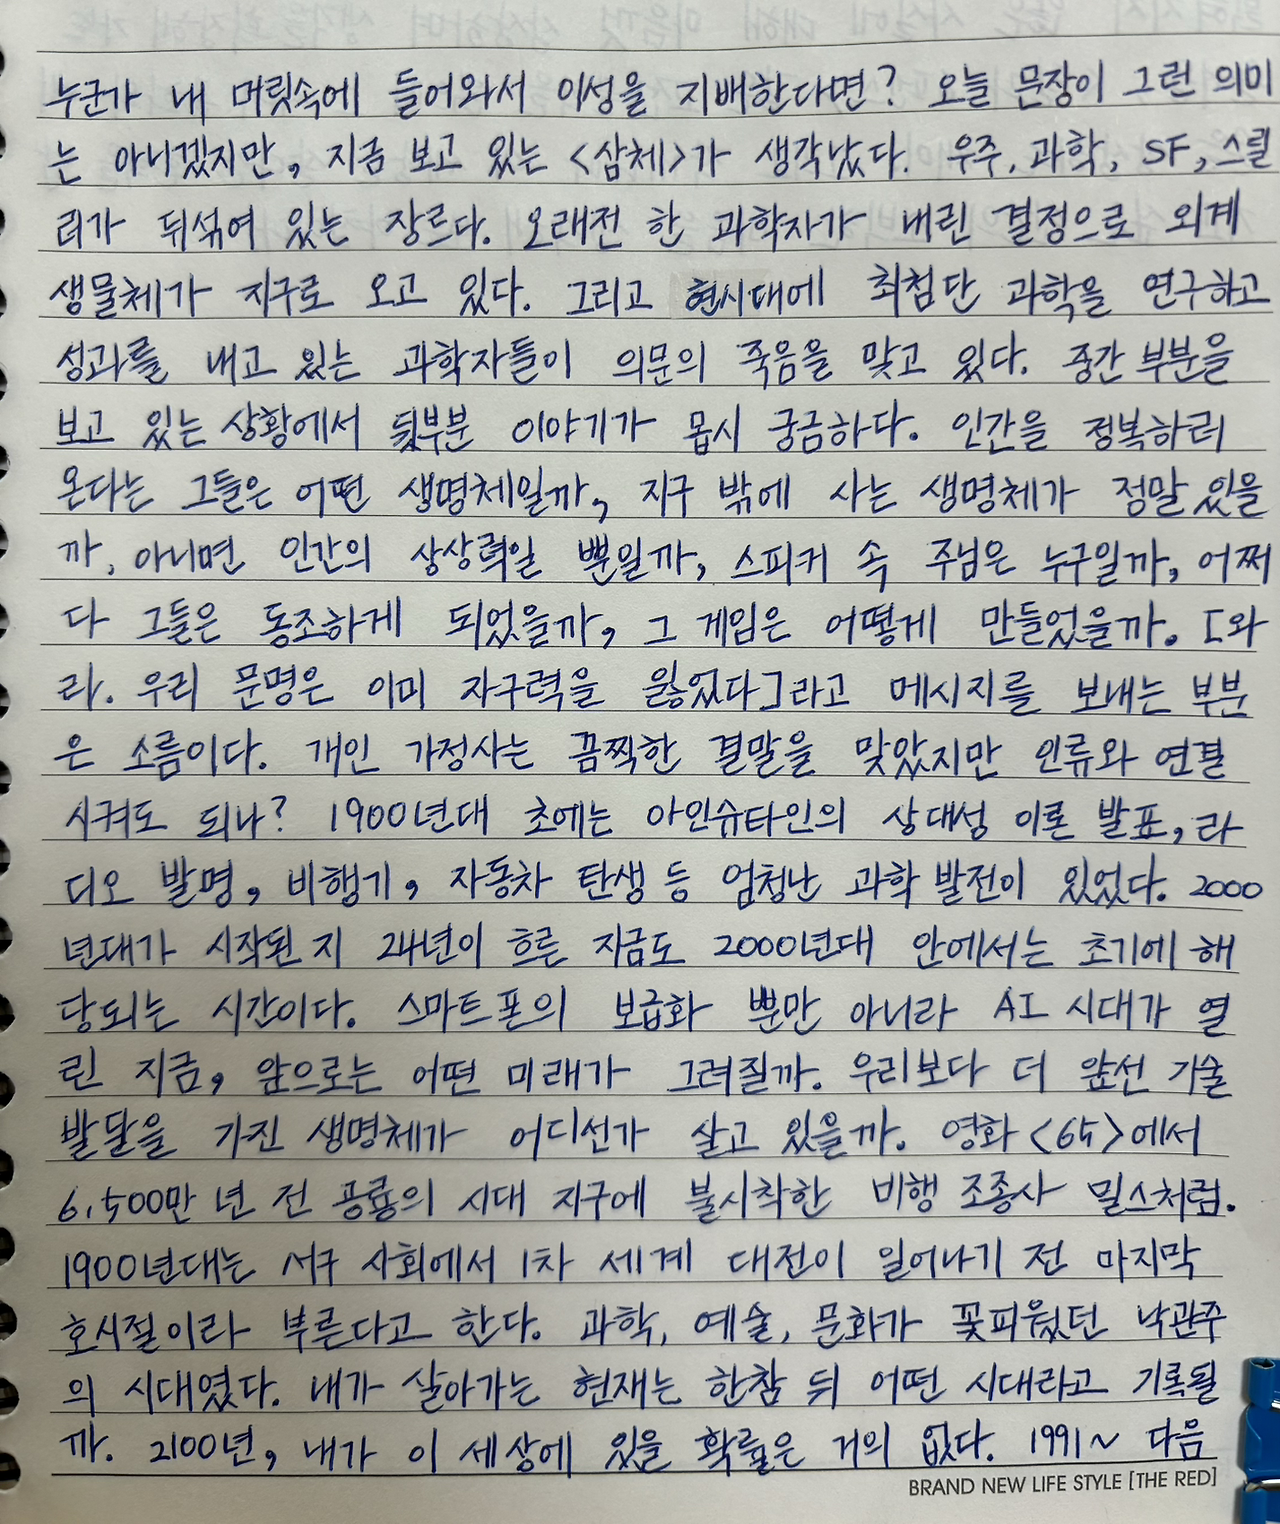 누군가 내 머릿속에 들어와서 이성을 지배한다면? 오늘 문장이 그런 의미
는 아니겠지만, 지금 보고 있는 <삼체>가 생각났다. 우주, 과학, SF, 스릴
러가 뒤섞여 있는 장르다. 오래전 한 과학자가 내린 결정으로 외계
생물체가 지구로 오고 있다. 그리고 현시대에 최첨단 과학을 연구하고
성과를 내고 있는 과학자들이 의문의 죽음을 맞고 있다. 중간 부분을
보고 있는 상황에서 뒷부분 이야기가 몹시 궁금하다. 인간을 정복하러
온다는 그들은 어떤 생명체일까, 지구 밖에 사는 생명체가 정말 있을
까, 아니면 인간의 상상력일 뿐일까, 스피커 속 주님은 누구일까, 어쩌
다 그들은 동조하게 되었을까, 그 게임은 어떻게 만들었을까. [와
라. 우리 문명은 이미 자구력을 잃었다]라고 메시지를 보내는 부분
은 소름이다. 개인 가정사는 끔찍한 결말을 맞았지만 인류와 연결
시켜도 되나? 1900년대 초에는 아인슈타인의 상대성 이론 발표, 라
디오 발명, 비행기, 자동차 탄생 등 엄청난 과학 발전이 있었다. 2000
년대가 시작된 지 24년이 흐른 지금도 2000년대 안에서는 초기에 해
당되는 시간이다. 스마트폰의 보급화 뿐만 아니라 AI 시대가 열
린 지금, 앞으로는 어떤 미래가 그려질까. 우리보다 더 앞선 기술
발달을 가진 생명체가 어디선가 살고 있을까. 영화 <65>에서
6,500만 년 전 공룡의 시대 지구에 불시착한 비행 조종사 밀스처럼.
1900년대는 서구 사회에서 1차 세계 대전이 일어나기 전 마지막
호시절이라 부른다고 한다. 과학, 예술, 문화가 꽃피웠던 낙관주
의 시대였다. 내가 살아가는 현재는 한참 뒤 어떤 시대라고 기록될
까. 2100년, 내가 이 세상에 있을 확률은 거의 없다. 1991~ 다음
BRAND NEW LIFE STYLE [THE RED]